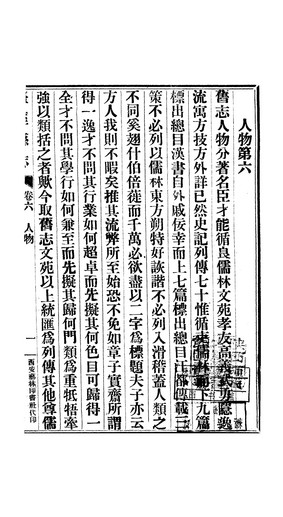 人物第六
舊志人物分著名臣才能循良儒林文苑孝友高義武勇隱逸
流寓方技方外詳已然史記列傳七十惟循吏儒林而下九篇
標出總目漢書自外戚佞幸而上七篇標出總目江都傳載三
策不必列以儒林東方朔特好詼諧不必列入滑稽蓋人類之
不同奚翅什伯倍蓰而千萬必欲盡以二字為標題夫子亦云
方人我則不暇矣推其流弊所至始恐不免如章子實齋所謂
得一逸才不問其行業如何超卓而先擬其何色目可歸得一
全才不問其學行如何兼至而先擬其歸何門類為重牴牾牽
強以類括之者歟今取舊志文苑以上統匯為列傳其他尊儒
卷六 人物
一
西安藝林印書社代印